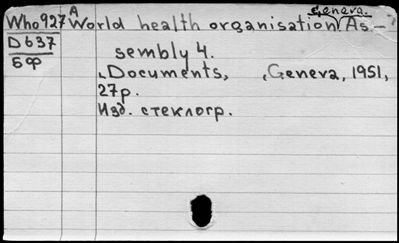 Geneva.
Who927 A World health organisation As-
D637 sembly 4.
БФ Documents, Geneva, 1951,
27p.
Изд. стеклогр.